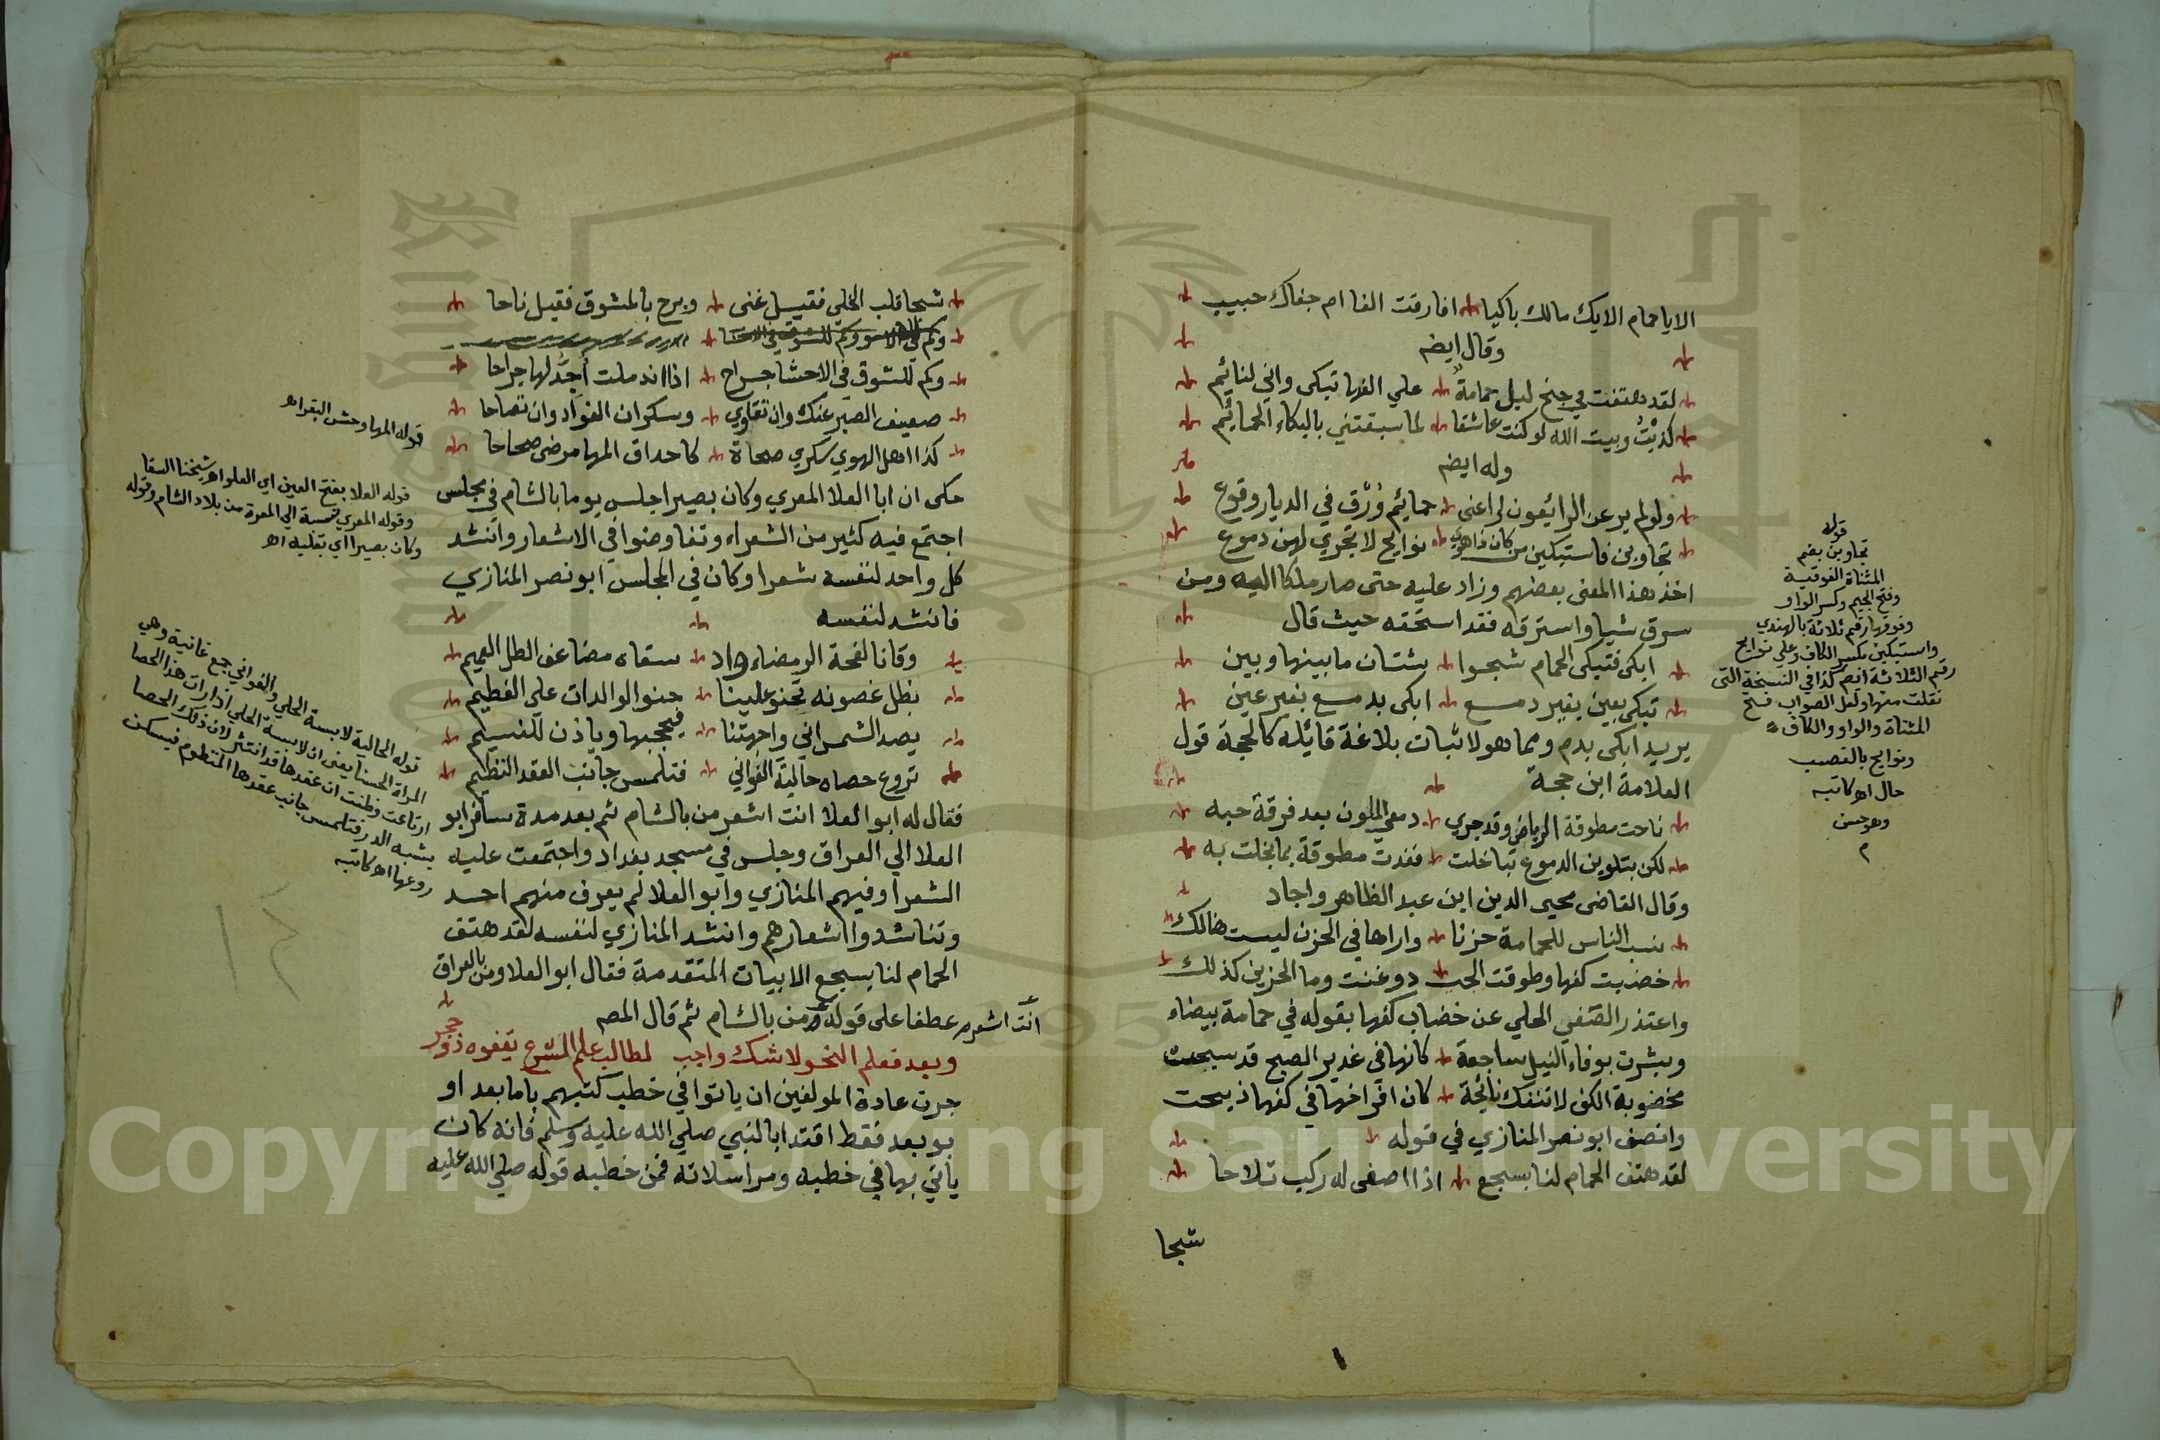 الا ياحمام الايك مالك باكيا افارقت الفا ام جفاك حبيب
وقال ايضه
لقد هتفت في جنح ليل حمامة علي الفها تبكي واني لنائيم
كذبت وبيت الله لو كنت عاشقا لما سبقتني بالبكاء الحمائيم
وله ايضه
ولو لم يرعن الرائيعون لراعني حمائيم وُرْق في الديار وقوع
تجاوبن فاستبكين من كان ذا هوي نوايح لا تجري لهن دموع
اخذ هذا المعنى بعضهم وزاد عليه حتى صار ملكا اليه ومن
سرق شيا واسترقه فقد استحقه حيث قال
ابكى فتبكى الحمام شجوا شتان ما بينها وبين
تبكي بعين بغير دمع ابكى بدمع بغير عين
يريد ابكى بدم ومما هو لاثبات بلاغة قايله كالحجة قول
العلامة ابن حجة
ناحت مطوقة الرياض وقد جري دمعي الملون بعد فرقة حبه
لكن بتلوين الدموع تباخلت فغدت مطوقة بما بخلت به
وقال القاضى محيى الدين ابن عبد الظاهر واجاد
نسب الناس للحمامة حزنا واراها في الحزن ليست هنالك
خضبت كفها وطوقت الجيد وغنت وما الحزين كذلك
واعتذر الصفي الحلي عن خضاب كفها بقوله في حمامة بيضاء
وبشرت بوفاء النيل ساجعة كانها في غدير الصبح قد سبحت
مخضوبة الكف لا تنفك نائحة كان افراخها في كفها ذبحت
وانصف ابو نصر المنازي في قوله
لقد هتف الحمام لنا بسجع اذا اصغى له ركب تلاحا
شجا
قوله
تجاوبن بضم
المثناة الفوقية
وفتح الجيم وكسر الواو
وفوقها رقم ثلاثة بالهندي
واستبكين بكسر الكاف وعلي نوايح
رقم الثلاثة اهم كذا في النسخة التي
نقلت منها ولعل الصواب فتح
المثناة والواو والكاف
ونوايح بالنصب
حال اهـ كاتبه
وهو حسن
م
شجا قلب الخلي فقيل غنى وبرح بالمشوق فقيل ناحا
وكم للشوق في الاحشا جراح اذا اندملت أجدّ لها جراحا
ضعيف الصبر عنك وان تقاوي وسكران الفؤاد وان تصاحا
كذا اهل الهوي سكري صحاة كاحداق المها مرضى صحاحا
حكى ان ابا العلا المعري وكان بصيرا جلس يوما بالشام في مجلس
اجتمع فيه كثير من الشعراء وتفاوضوا في الاشعار وانشد
كل واحد لنفسه شعرا وكان في المجلس ابو نصر المنازي
فانشد لنفسه
وقانا لفحة الرمضاء واد سقاه مضاعف الطل العميم
نظل غصونه تحنو علينا حنو الوالدات علي الفطيم
يصد الشمس اني واجهتنا فيحجبها وياذن للنسيم
تروع حصاه حالية الغواني فتلمس جانب العقد النظيم
فقال له ابو العلا انت اشعر من بالشام ثم بعد مدة سافر ابو
العلا الي العراق وجلس في مسجد بغداد واجتمعت عليه
الشعرا وفيهم المنازي وابو العلا لم يعرف منهم احد
وتناشدوا اشعارهم وانشد المنازي لنفسه لقد هتف
الحمام لنا بسجع الابيات المتقدمة فقال ابو العلا ومن بالعراق
عطفا على قوله من بالشام ثم قال المصه
انت اشعر
وبعد فعلم النحو لا شك واجب لطالب علم الشرع يقفوه ذو حجر
جرت عادة المولفين ان ياتوا في خطب كتبهم باما بعد او
بوبعد فقط اقتدا بالنبي صلي الله عليه وسلم فانه كان
ياتي بها في خطبه ومراسلاته فمن خطبه قوله صلي الله عليه
قوله المها وحش البقر اهـ
قوله العلا بفتح العين اي العلو اهـ شيخنا السقا
وقوله المعري نسبة الي المعرة من بلاد الشام وقوله
وكان بصيرا اي بقلبه اهـ
قوله الحالية لابسة الحلي والغواني جمع غانية وهي
المراة الحسنا يعني ان لابسة الحلي اذا رات هذا الحصا
ارتاعت وظنت ان عقدها قد انتثر لان ذلك الحصا
يشبه الدر فتلمس جانب عقدها المنظوم فيسكن
روعها اهـ كاتبه
Copyright © King Saud University